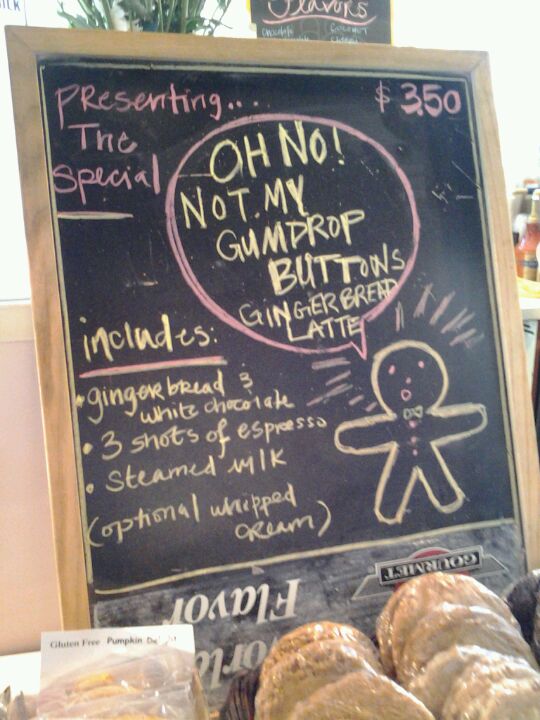 Flavors
Chocolate
Presenting...
The
Special
$ 3.50
OH NO!
NOT MY
GUMDROP
BUTTONS
GINGERBREAD
LATTE
includes:
• gingerbread &
white chocolate
• 3 shots of espresso
• steamed milk
(optional whipped
cream)
GOURMET
Flavor
Gluten Free Pumpkin Delight